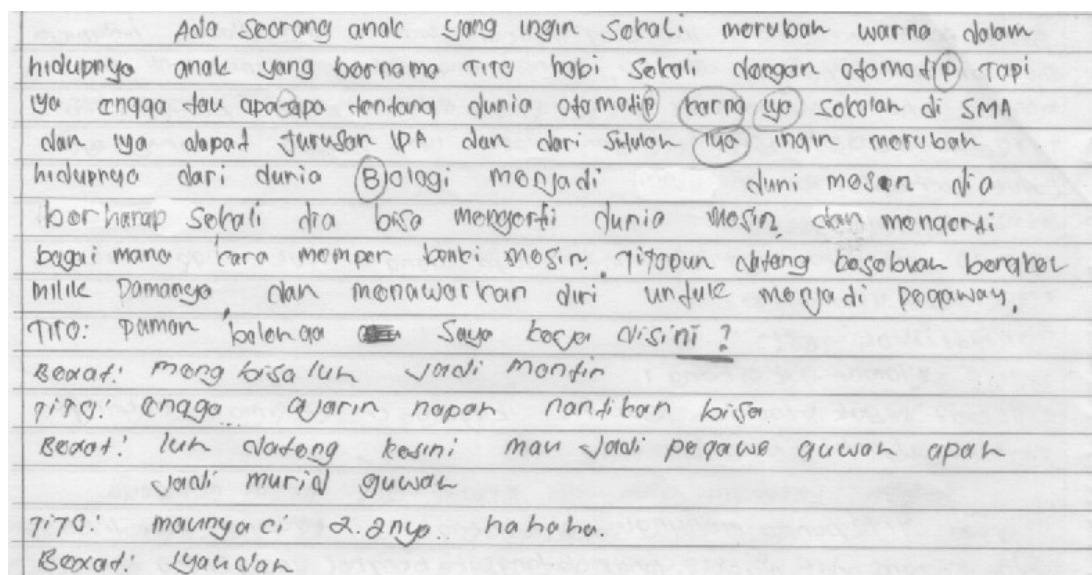 Ada seorang anak yang ingin sekali merubah warna dalam
hidupnya anak yang bernama TITO hobi sekali dengan otomotip Tapi
iya engga tau apa-apa tentang dunia otomotip karna iya sekolah di SMA
dan iya dapat jurusan IPA dan dari situlah iya ingin merubah
hidupnya dari dunia Biologi menjadi duni mesen dia
berharap sekali dia bisa mengerti dunia mesin, dan mengerti
bagai mana cara memper baiki mesin. Titopun dateng kesebuah bengkel
milik pamanya, dan menawarkan diri untuk menjadi pegaway.
TITO: paman, bolehga saya kerja disini?
Bexat: mang bisa luh jadi montir
TITO: engga.. ajarin napah nantikan bisa
Bexat: luh dateng kesini mau jadi pegawe guwah apah
jadi murid guwah
TITO: maunya ci 2.2nya.. hahaha.
Bexat: iyaudah